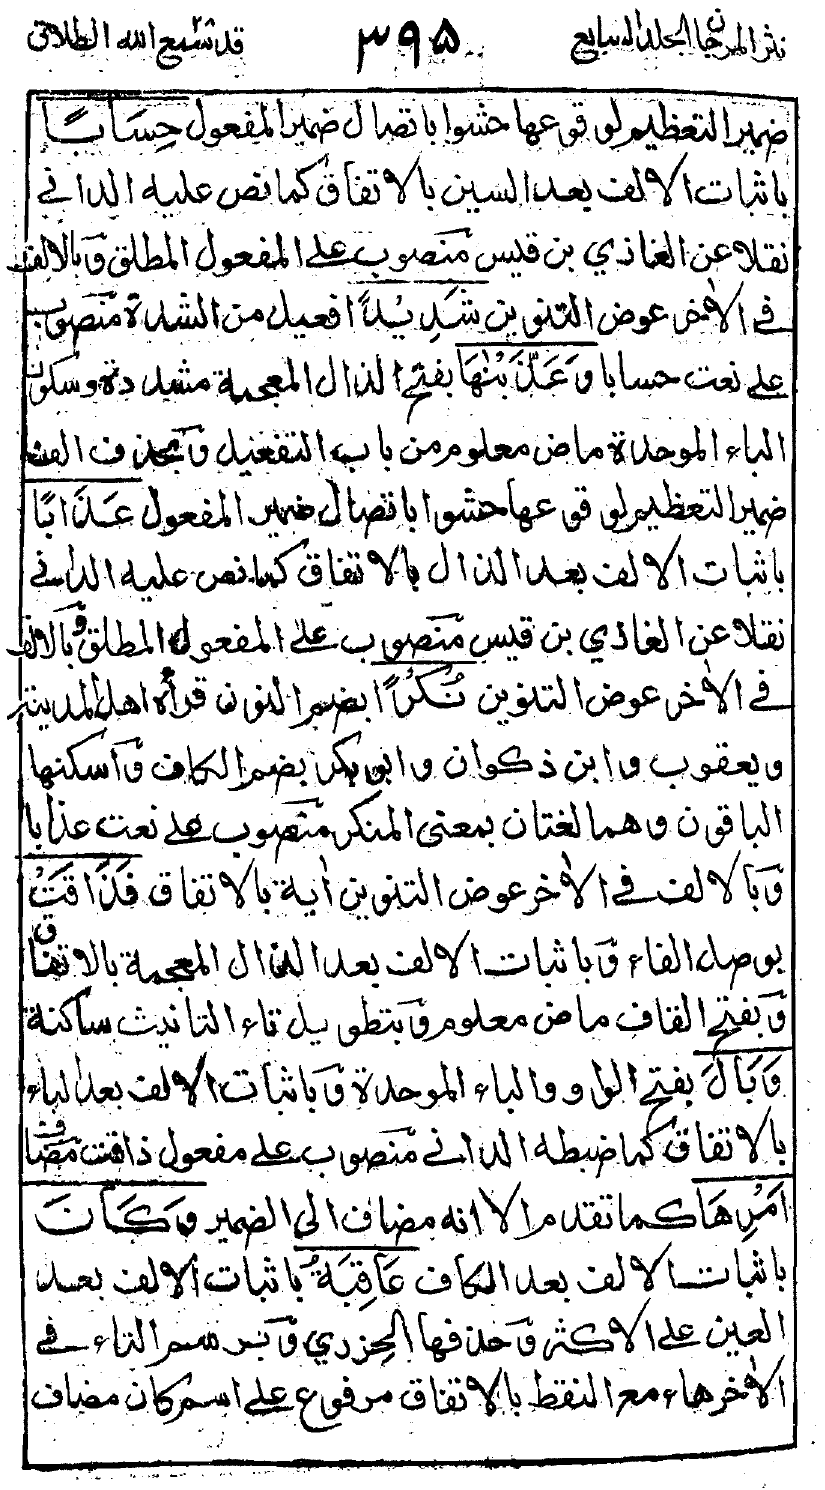 نثر المرجان الجلد السابع ٣٩٥ قد سمع الله الطلاق
ضمير التعظيم لوقوعها حشوا باتصال ضمير المفعول حِسَابًا
باثبات الالف بعد السين بالاتفاق كما نص عليه الداني
نقلا عن الغازي بن قيس منصوب على المفعول المطلق وبالالف
في الآخر عوض التنوين شَدِيْدًا فعيل من الشدة منصوب
على نعت حسابا وَعَذَّبْنٰهَا بفتح الذال المعجمة مشددة وسكون
الباء الموحدة ماض معلوم من باب التفعيل وبحذف الف
ضمير التعظيم لوقوعها حشوا باتصال ضمير المفعول عَذَابًا
باثبات الالف بعد الذال بالاتفاق كما نص عليه الداني
نقلا عن الغازي بن قيس منصوب على المفعول المطلق وبالالف
في الآخر عوض التنوين نُكْرًا بضم النون قرأه اهل المدينة
ويعقوب وابن ذكوان وابو بكر بضم الكاف واسكنها
الباقون وهما لغتان بمعنى المنكر منصوب على نعت عذابا
وبالالف في الآخر عوض التنوين اٰية بالاتفاق فَذَاقَتْ
بوصل الفاء وباثبات الالف بعد الذال المعجمة بالاتفاق
وبفتح القاف ماض معلوم وبتطويل تاء التانيث ساكنة
وَبَالَ بفتح الواو والباء الموحدة وباثبات الالف بعد الباء
بالاتفاق كما ضبطه الداني منصوب على مفعول ذاقت مضاف
اَمْرِهَا كما تقدم الا انه مضاف الى الضمير وَكَانَ
باثبات الالف بعد الكاف عَاقِبَةُ باثبات الالف بعد
العين على الاكثر وحذفها الجزري وبرسم التاء في
الآخر هاء مع النقط بالاتفاق مرفوع على اسم كان مضاف